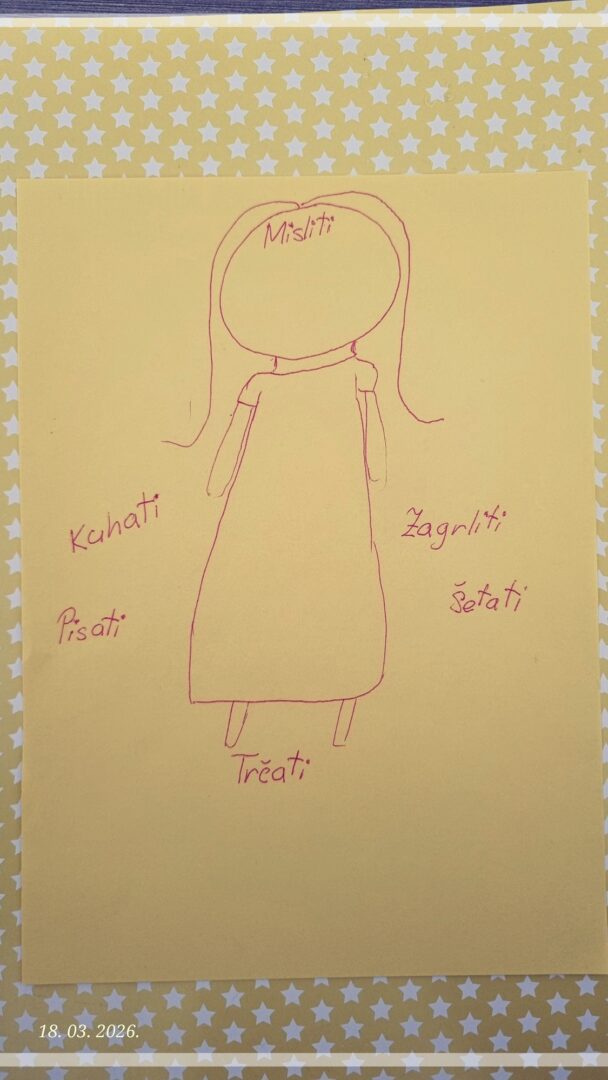 Misliti
Kuhati
Zagrliti
Šetati
Pisati
Trčati
18. 03. 2026.